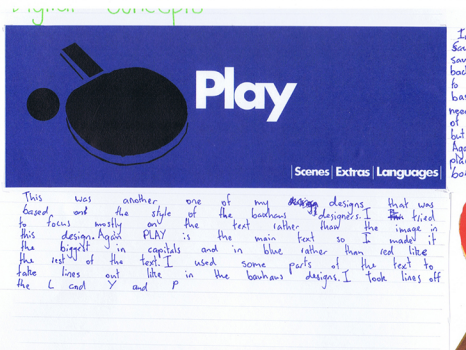 Digital Concepts
Play
Scenes Extras Languages
This was another one of my designs that was
based on the style of the bauhaus designers. I tried
to focus mostly on the text rather than the image in
this design. Again PLAY is the main text so I made it
the biggest in capitals and in blue rather than red like
the rest of the text. I used some parts of the text to
take lines out like in the bauhaus designs. I took lines off
the L and Y and P